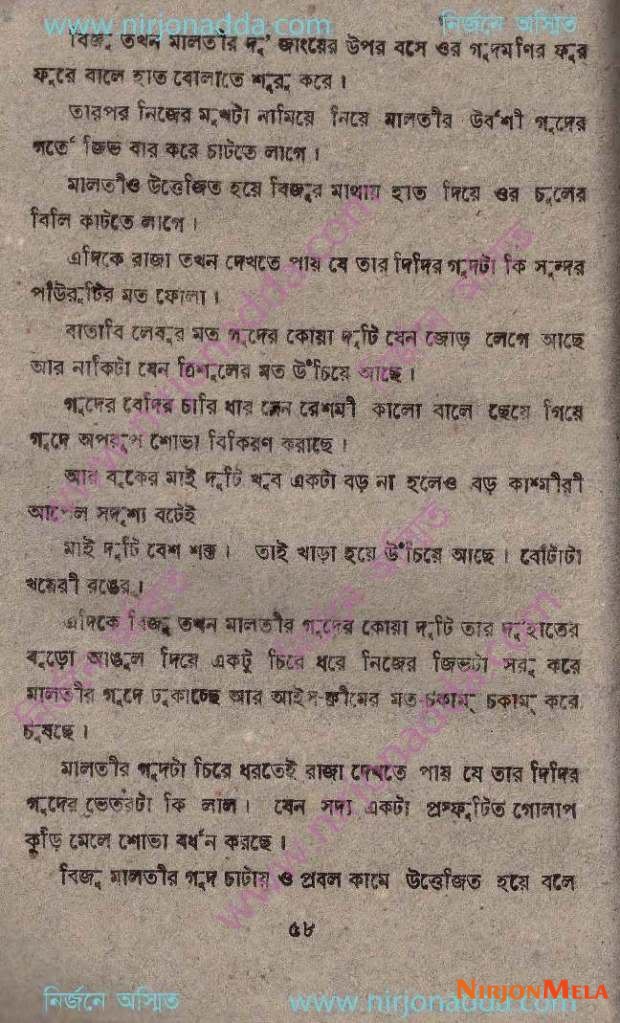 www.nirjonadda.com নির্জনে অস্মিত
বিজু তখন মালতীর দু জাংয়ের উপর বসে ওর গুদমণির ফুর
ফুরে বালে হাত বোলাতে শুরু করে।
তারপর নিজের মুখটা নামিয়ে নিয়ে মালতীর উর্বশী গুদের
গর্তে জিভ বার করে চাটতে লাগে।
মালতীও উত্তেজিত হয়ে বিজুর মাথায় হাত দিয়ে ওর চুলের
বিলি কাটতে লাগে।
এদিকে রাজা তখন দেখতে পায় যে তার দিদির গুদটা কি সুন্দর
পাঁউরুটির মত ফোলা।
বাতাবি লেবুর মত গুদের কোয়া দুটি যেন জোড় লেগে আছে
আর নাকিটা যেন ত্রিশূলের মত উঁচিয়ে আছে।
গুদের বেদির চারি ধার যেন রেশমী কালো বালে ছেয়ে গিয়ে
গুদে অপরূপ শোভা বিকিরণ করাছে।
আর বুকের মাই দুটি খুব একটা বড় না হলেও বড় কাশ্মীরী
আপেল সদৃশ্য বটেই
মাই দুটি বেশ শক্ত। তাই খাড়া হয়ে উঁচিয়ে আছে। বোঁটাটা
খয়েরী রঙের।
এদিকে বিজু তখন মালতীর গুদের কোয়া দুটি তার দু'হাতের
বুড়ো আঙুল দিয়ে একটু চিরে ধরে নিজের জিভটা সরু করে
মালতীর গুদে ঢুকাচ্ছে আর আইস-ক্রীমের মত চকাম্ চকাম্ করে
চুষছে।
মালতীর গুদটা চিরে ধরতেই রাজা দেখতে পায় যে তার দিদির
গুদের ভেতরটা কি লাল। যেন সদ্য একটা প্রস্ফুটিত গোলাপ
কুঁড়ি মেলে শোভা বর্ধন করছে।
বিজু মালতীর গুদ চাটায় ও প্রবল কামে উত্তেজিত হয়ে বলে
৫৮
NIRJONMELA
নির্জনে অস্মিত www.nirjonadda.com